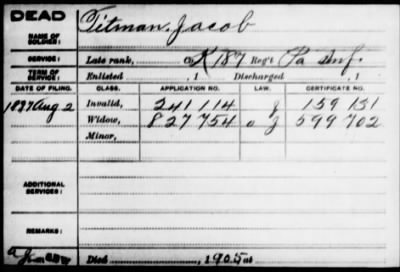 DEAD
Titman, Jacob
NAME OF SOLDIER:
SERVICE: Late rank, K 187 Reg't Pa Inf.
TERM OF SERVICE: Enlisted , 1 Discharged , 1
DATE OF FILING. CLASS. APPLICATION NO. LAW. CERTIFICATE NO.
1897 Aug 2 Invalid, 241 114 J 159 131
Widow, 827 754 J 599 702
Minor,
ADDITIONAL SERVICES:
REMARKS:
Died , 1905 at